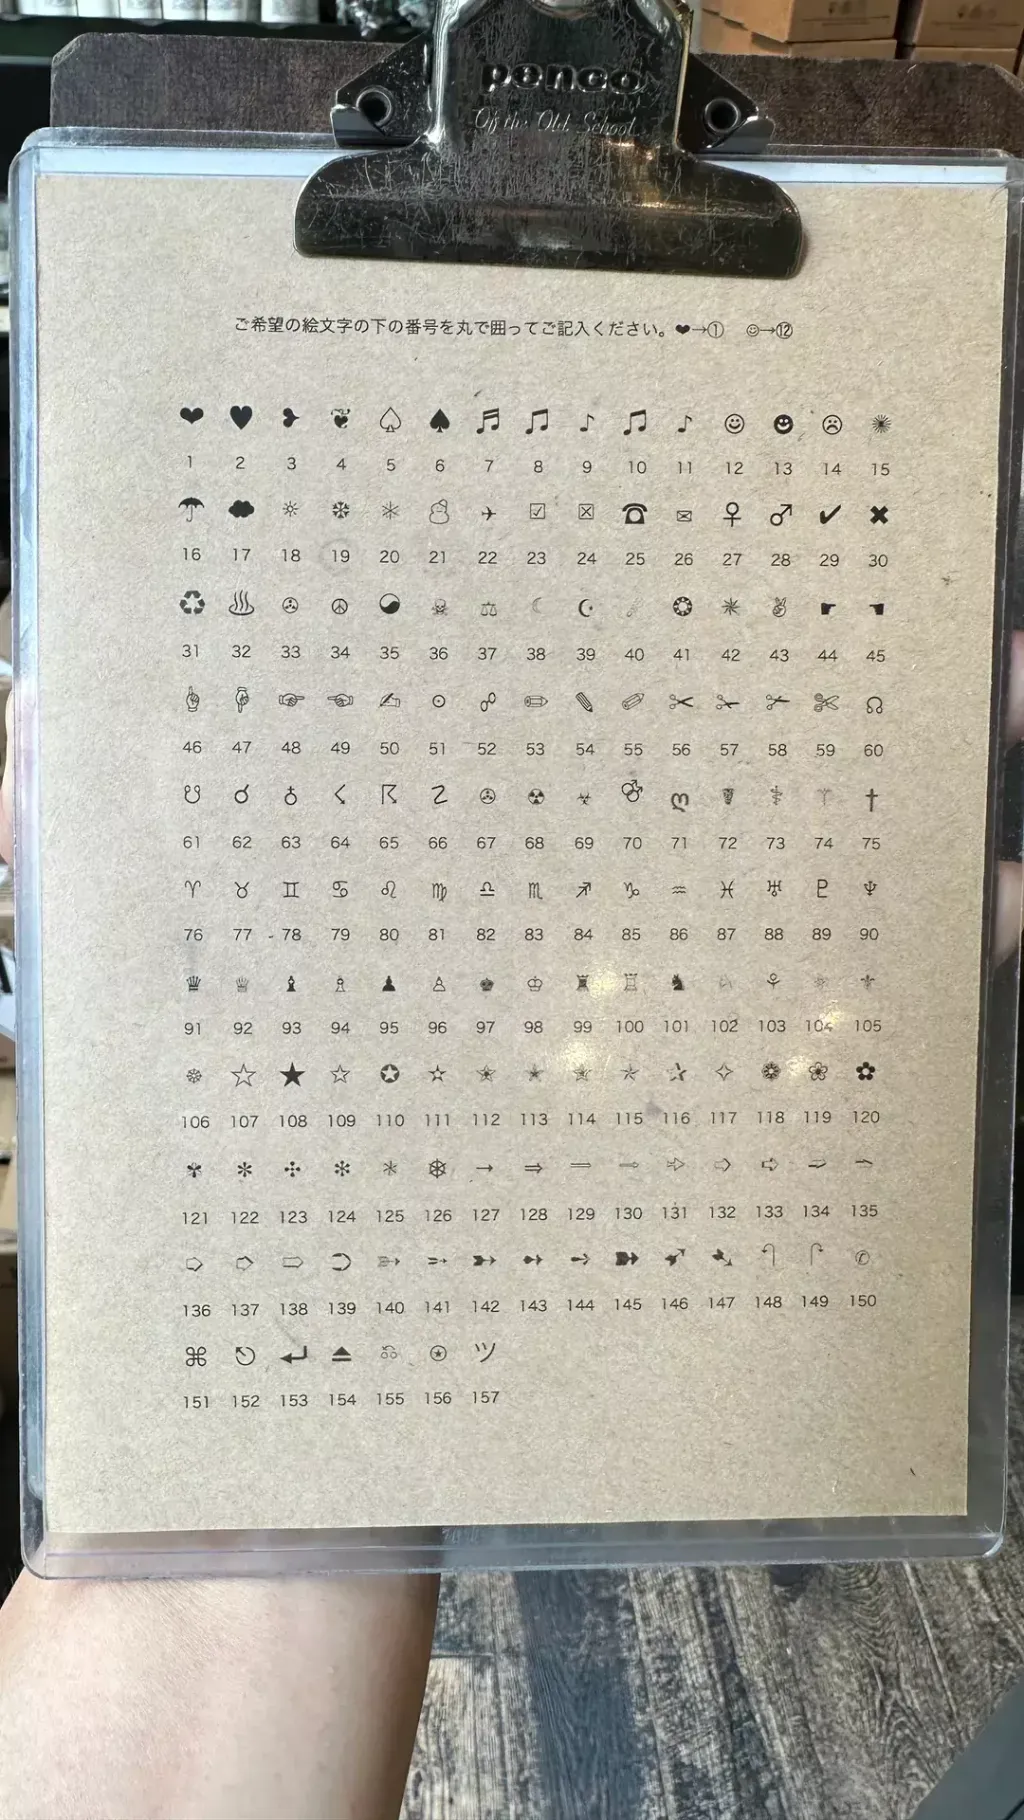 penco
Of the Old School
ご希望の絵文字の下の番号を丸で囲ってご記入ください。❤→① ☺→⑫
1 2 3 4 5 6 7 8 9 10 11 12 13 14 15
16 17 18 19 20 21 22 23 24 25 26 27 28 29 30
31 32 33 34 35 36 37 38 39 40 41 42 43 44 45
46 47 48 49 50 51 52 53 54 55 56 57 58 59 60
61 62 63 64 65 66 67 68 69 70 71 72 73 74 75
76 77 78 79 80 81 82 83 84 85 86 87 88 89 90
91 92 93 94 95 96 97 98 99 100 101 102 103 104 105
106 107 108 109 110 111 112 113 114 115 116 117 118 119 120
121 122 123 124 125 126 127 128 129 130 131 132 133 134 135
136 137 138 139 140 141 142 143 144 145 146 147 148 149 150
ツ
151 152 153 154 155 156 157